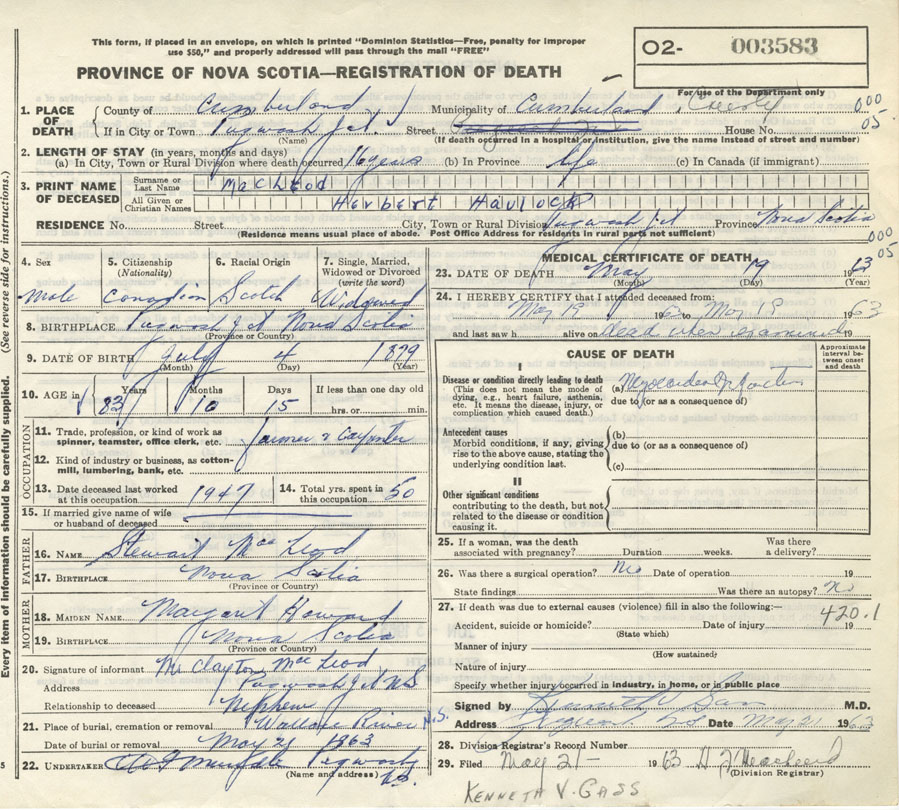 This form, if placed in an envelope, on which is printed "Dominion Statistics—Free, penalty for improper
use $50," and properly addressed will pass through the mail "FREE"
PROVINCE OF NOVA SCOTIA—REGISTRATION OF DEATH
O2- 003583
For use of the Department only
1. PLACE OF DEATH { County of Cumberland Municipality of Cumberland, County 000
If in City or Town Pugwash Jct. Street House No. 05
(Name) (If death occurred in a hospital or institution, give the name instead of street and number)
2. LENGTH OF STAY (in years, months and days)
(a) In City, Town or Rural Division where death occurred 16 years (b) In Province life (c) In Canada (if immigrant)
3. PRINT NAME OF DECEASED { Surname or Last Name MacLeod
All Given or Christian Names Herbert Havlock
RESIDENCE No. Street City, Town or Rural Division Pugwash Jct Province Nova Scotia
(Residence means usual place of abode. Post Office Address for residents in rural parts not sufficient) 000
05
4. Sex 5. Citizenship (Nationality) 6. Racial Origin 7. Single, Married, Widowed or Divorced (write the word)
Male Canadian Scotch Widowed
8. BIRTHPLACE Pugwash Jct Nova Scotia
(Province or Country)
9. DATE OF BIRTH July 4 1879
(Month) (Day) (Year)
10. AGE in { Years Months Days If less than one day old
83 10 15 hrs. or min.
OCCUPATION
11. Trade, profession, or kind of work as spinner, teamster, office clerk, etc. farmer & carpenter
12. Kind of industry or business, as cotton-mill, lumbering, bank, etc.
13. Date deceased last worked at this occupation 1947 14. Total yrs. spent in this occupation 50
15. If married give name of wife or husband of deceased
FATHER
16. NAME Stewart MacLeod
17. BIRTHPLACE Nova Scotia
(Province or Country)
MOTHER
18. MAIDEN NAME Margaret Howard
19. BIRTHPLACE Nova Scotia
(Province or Country)
20. Signature of informant Mr Clayton MacLeod
Address Pugwash Jct N S
Relationship to deceased Nephew
21. Place of burial, cremation or removal Wallace River N.S.
Date of burial or removal May 21 1963
22. UNDERTAKER Pugwash NS
(Name and address)
MEDICAL CERTIFICATE OF DEATH
23. DATE OF DEATH May 19 1963
(Month) (Day) (Year)
24. I HEREBY CERTIFY that I attended deceased from:
May 19 1963 to May 19 1963
and last saw h alive on dead when examined 19
CAUSE OF DEATH
Approximate interval between onset and death
I
Disease or condition directly leading to death (a)
(This does not mean the mode of dying, e.g., heart failure, asthenia, etc. It means the disease, injury, or complication which caused death.) due to (or as a consequence of)
Antecedent causes (b)
Morbid conditions, if any, giving rise to the above cause, stating the underlying condition last. due to (or as a consequence of)
(c)
II
Other significant conditions
contributing to the death, but not related to the disease or condition causing it.
25. If a woman, was the death associated with pregnancy? Duration weeks. Was there a delivery?
26. Was there a surgical operation? No Date of operation 19
State findings Was there an autopsy? No
27. If death was due to external causes (violence) fill in also the following:— 420.1
Accident, suicide or homicide? Date of injury 19
(State which)
Manner of injury
(How sustained)
Nature of injury
Specify whether injury occurred in industry, in home, or in public place
Signed by Kenneth V Gass M.D.
Address Pugwash NS Date May 21 1963
28. Division Registrar's Record Number
29. Filed May 21- 1963
(Division Registrar)
KENNETH V. GASS
Every item of information should be carefully supplied. (See reverse side for instructions.)
5